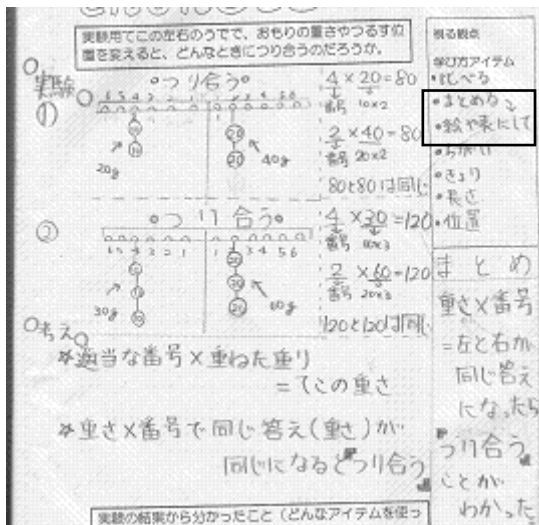 実験用てこの左右のうでで、おもりの重さやつるす位
置を変えると、どんなときにつり合うのだろうか。
実験
① つり合う
6 5 4 3 2 1 1
20g
40g
4×20=80
番号 10×2
2×40=80
番号 20×2
80と80は同じ
② つり合う
6 5 4 3 2 1 1 3 4 5 6
30g
60g
4×30=120
番号 10×3
2×60=120
番号 20×3
120と120は同じ
考え
適当な番号×重ねた重り
=てこの重さ
重さ×番号で同じ答え(重さ)が
同じになるとつり合う
実験の結果から分かったこと(どんなアイテムを使っ
視る観点
学び方アイテム
・比べる
・まとめる
・絵や表にして
・ちがい
・きょり
・長さ
・位置
まとめ
重さ×番号
=左と右が
同じ答え
になったら
つり合う
ことが
わかった